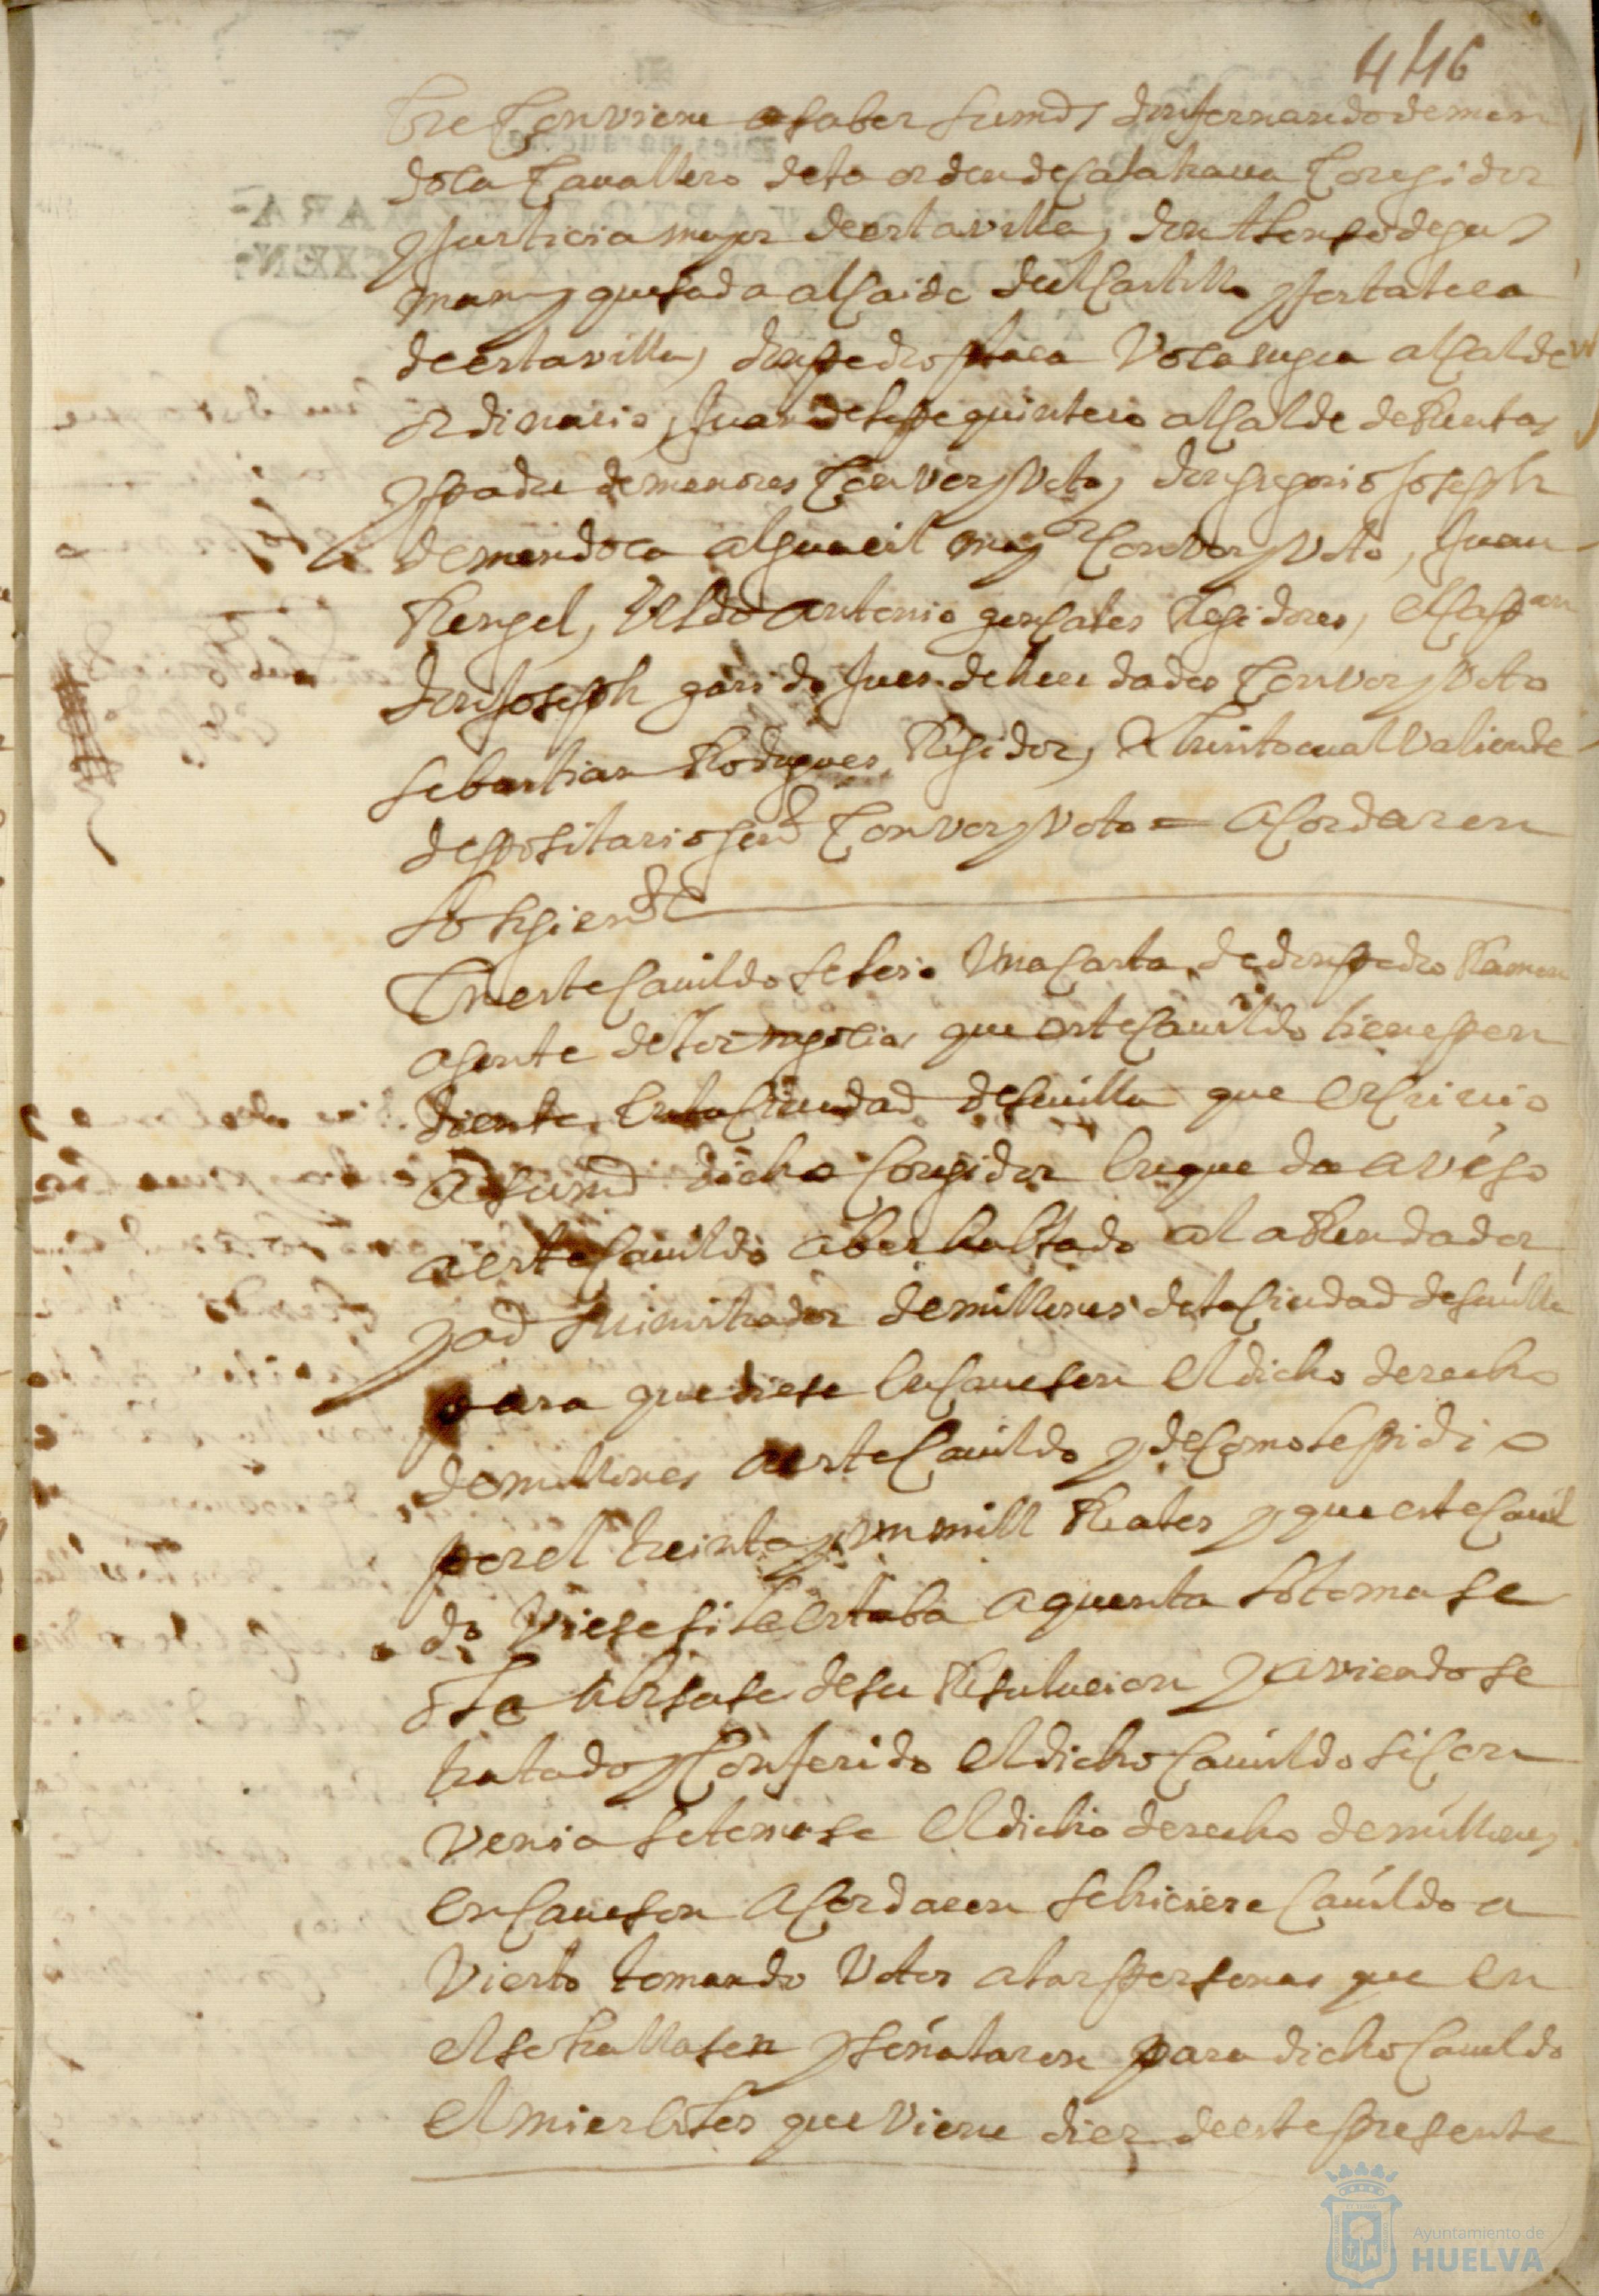 446
bre Conviene a saber su md don fernando de men
doca Cavallero de la orden de Calatraua Coregidor
y justicia mayor de esta villa, don Alonso de gus
man y quesada alcaide del Castillo y fortaleca
de esta villa, don pedro alcalde
ordinario, Juan de lepe quintero alcalde de Rentas
y padre de menores Con vos y voto, don gregorio Joseph
de mendoca alguacil mayor Con vos y voto, Juan
Rengel, Antonio gonsales Regidores, el cappan
don Joseph garrido Jues de heredades Con vos y voto
sebastian Rodrigues Regidor, Valiente
depositario gen Con vos y voto = acordaron
lo sigiente
En este Cavildo se leio Una Carta de don pedro Ramon
agente de los negocios que este Cauildo tiene pen
diente en la Ciudad de seuilla que escriuio
a su md dicho Coregidor en que da aviso
a este Cauildo aber hablado al aRendador
y administrador de millones de la Ciudad de seuilla
para que diese en Caueson el dicho derecho
de millones a este Cauildo y de como se pidi o
por el treinta y un mill Reales y que este Cauil
do viese si le estaba a quenta lo tomase
o le abisase de su Resulucion y aviendose
tratado y Conferido el dicho Cauildo si Con
venia se tomase el dicho derecho de millones
en Caueson acordaron se hiciere Cauildo a
vierto tomando votos a las personas que en
el se hallasen y señalaron para dicho Cauildo
el mierColes que viene dies de este presente
Ayuntamiento de
HUELVA